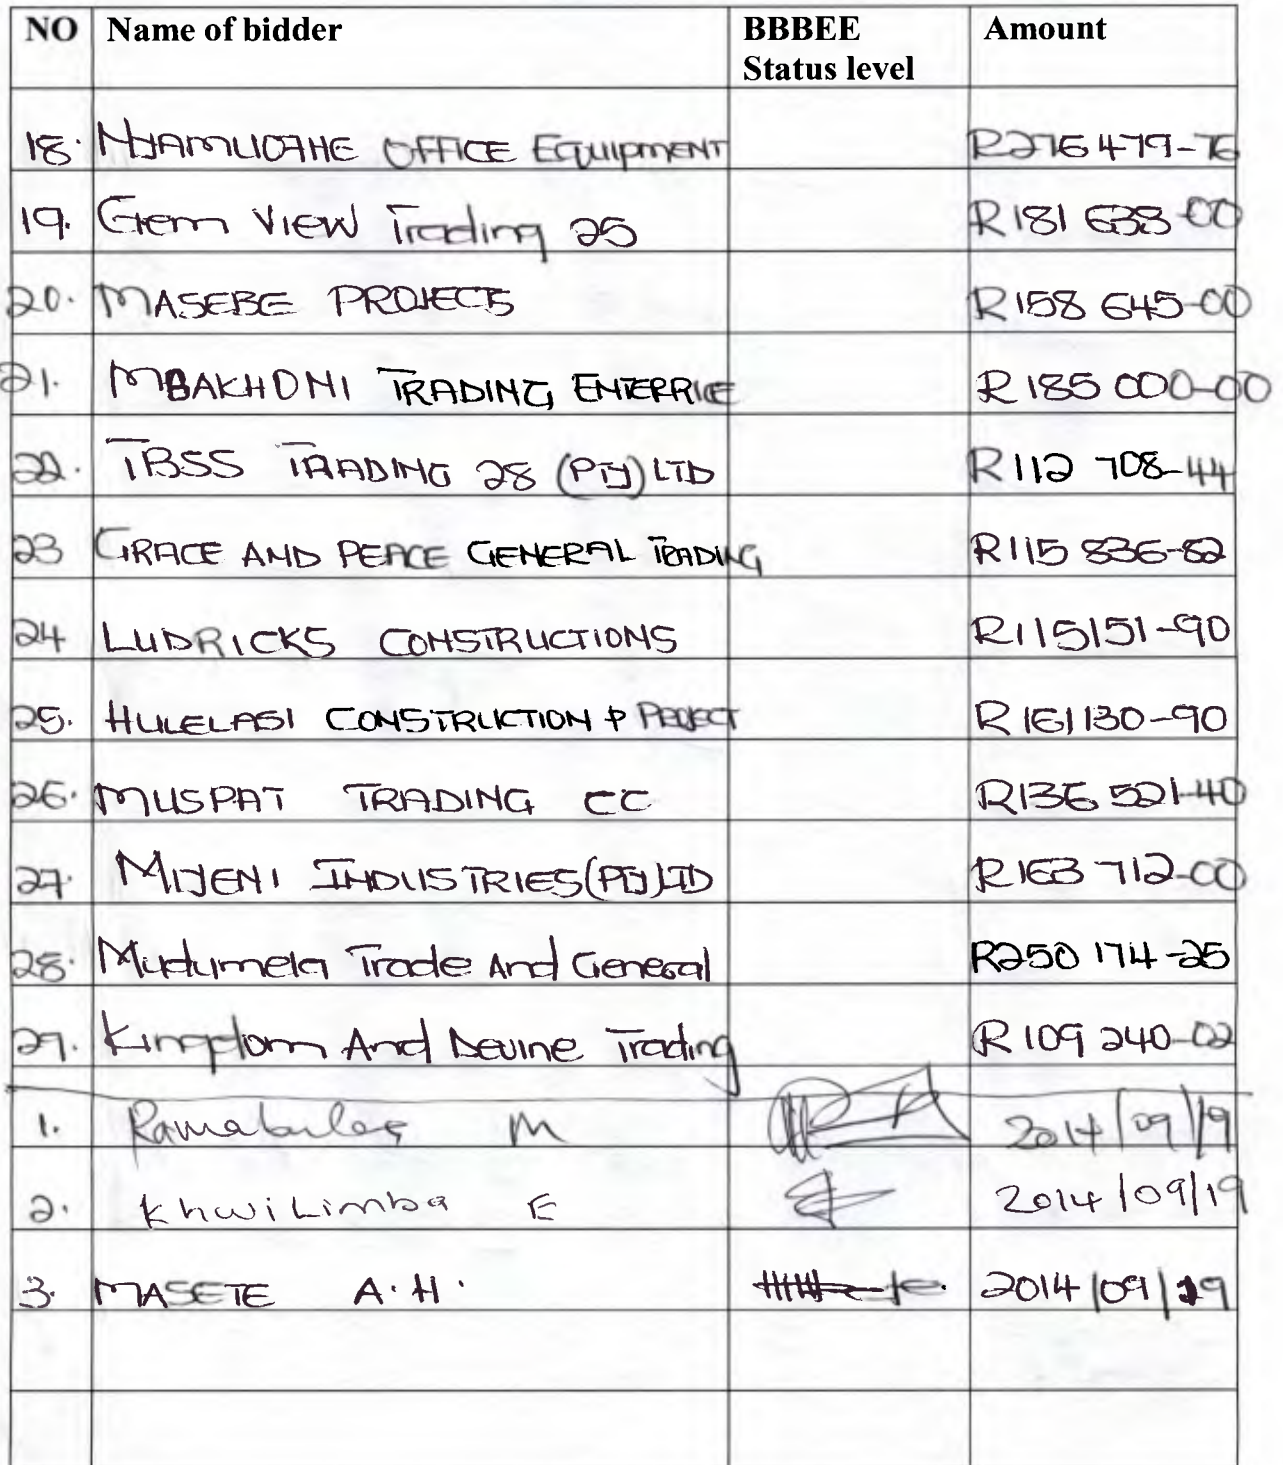 NO Name of bidder BBBEE Status level Amount
18. OFFICE EQUIPMENT R276 479-76
19. Gem View Trading 25 R181 638-00
20. MASEBE PROJECTS R158 645-00
21. MBAKHONI TRADING ENTERPRICE R185 000-00
22. TBSS TRADING 28 (PTY) LTD R112 708-44
23 GRACE AND PEACE GENERAL TRADING R115 836-82
24 LUDRICKS CONSTRUCTIONS R115151-90
25. HULELASI CONSTRUCTION & PROJECT R161130-90
26. MUSPAT TRADING CC R136 521-40
27. MIJENI INDUSTRIES (PTY) LTD R163 712-00
28. Mudumela Trade And General R250 174-25
29. Kingdom And Devine Trading R109 240-02
1. M 2014/09/19
2. Khwilimba E 2014/09/19
3. MASETE A.H. 2014/09/19